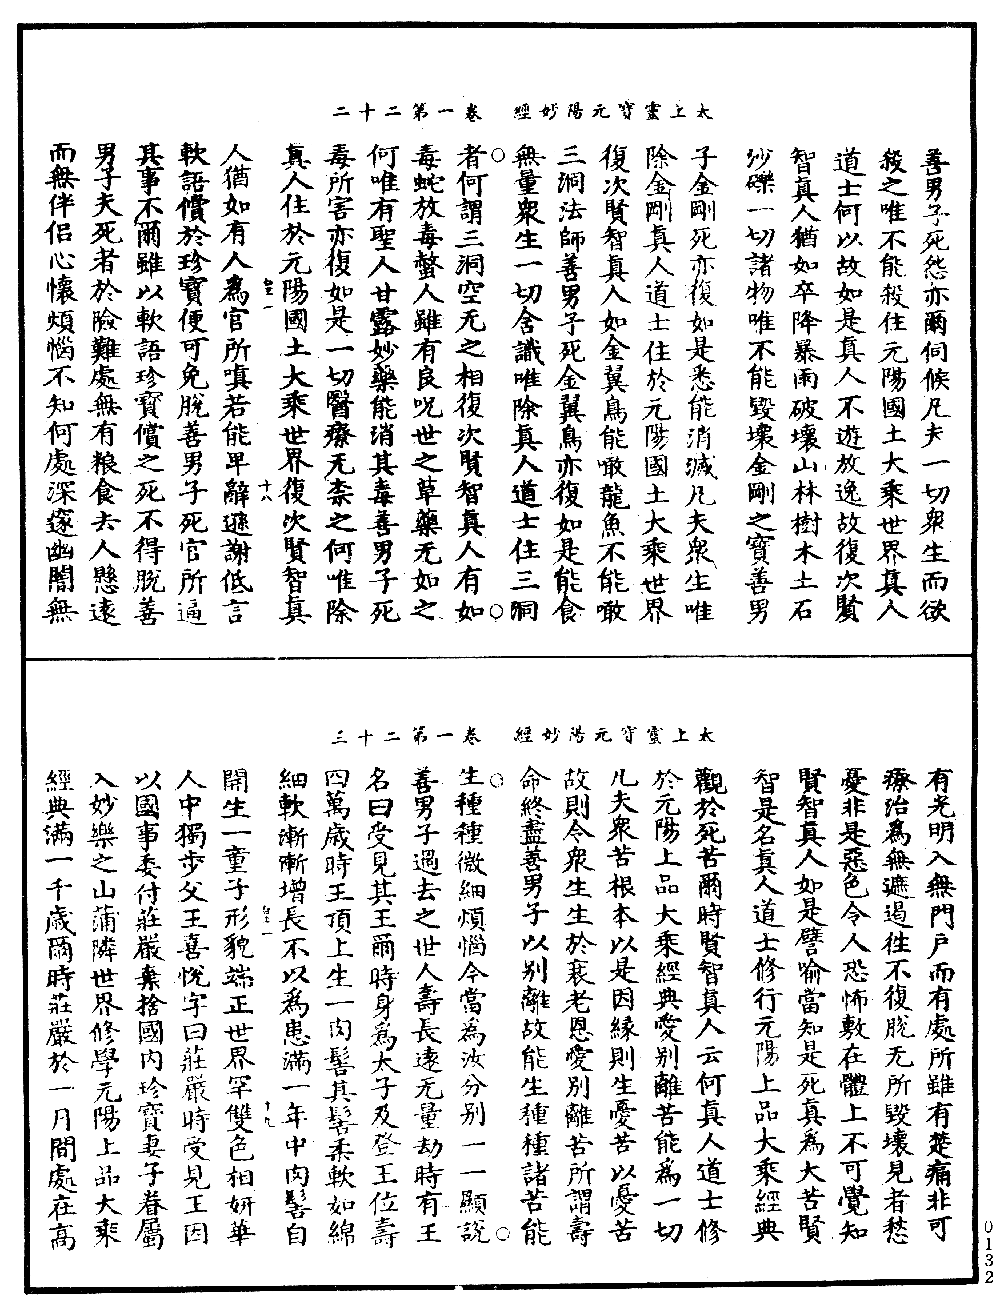 太上靈寶元陽妙經　卷一第二十二
善男子死怨亦爾伺候凡夫一切衆生而欲
殺之唯不能殺住元陽國土大乘世界真人
道士何以故如是真人不遊放逸故復次賢
智真人猶如卒降暴雨破壞山林樹木土石
沙礫一切諸物唯不能毀壞金剛之寶善男
子金剛死亦復如是悉能消滅凡夫衆生唯
除金剛真人道士住於元陽國土大乘世界
復次賢智真人如金翼鳥能噉龍魚不能噉
三洞法師善男子死金翼鳥亦復如是能食
無量衆生一切含識唯除真人道士住三洞
者何謂三洞空无之相復次賢智真人有如
毒蛇放毒螫人雖有良呪世之草藥无如之
何唯有聖人甘露妙藥能消其毒善男子死
毒所害亦復如是一切醫療无柰之何唯除
真人住於元陽國土大乘世界復次賢智真
十八
人猶如有人為官所嗔若能卑辭遜謝低言
軟語償於珍寶便可免脫善男子死官所逼
其事不爾雖以軟語珍寶償之死不得脫善
男子夫死者於險難處無有粮食去人懸遠
而無伴侶心懷煩惱不知何處深邃幽闇無
太上靈寶元陽妙經　卷一第二十三
有光明入無門戶而有處所雖有楚痛非可
療治為無遮遏徃不復脫无所毀壞見者愁
憂非是惡色令人恐怖敷在體上不可覺知
賢智真人如是譬喻當知是死真為大苦賢
智是名真人道士修行元陽上品大乘經典
觀於死苦爾時賢智真人云何真人道士修
於元陽上品大乘經典愛別離苦能為一切
凡夫衆苦根本以是因緣則生憂苦以憂苦
故則令衆生生於衰老恩愛別離苦所謂壽
命終盡善男子以別離故能生種種諸苦能
生種種微細煩惱今當為汝分別一一顯說
善男子過去之世人壽長遠无量劫時有王
名曰受見其王爾時身為太子及登王位壽
四萬歲時王頂上生一肉髻其髻柔軟如綿
細軟漸漸增長不以為患滿一年中肉髻自
十九
開生一童子形貌端正世界罕雙色相妍華
人中獨步父王喜悅字曰莊嚴時受見王因
以國事委付莊嚴棄捨國内珍寶妻子眷屬
入妙樂之山蒲隣世界修學元陽上品大乘
經典滿一千歲爾時莊嚴於一月間處在高
0132